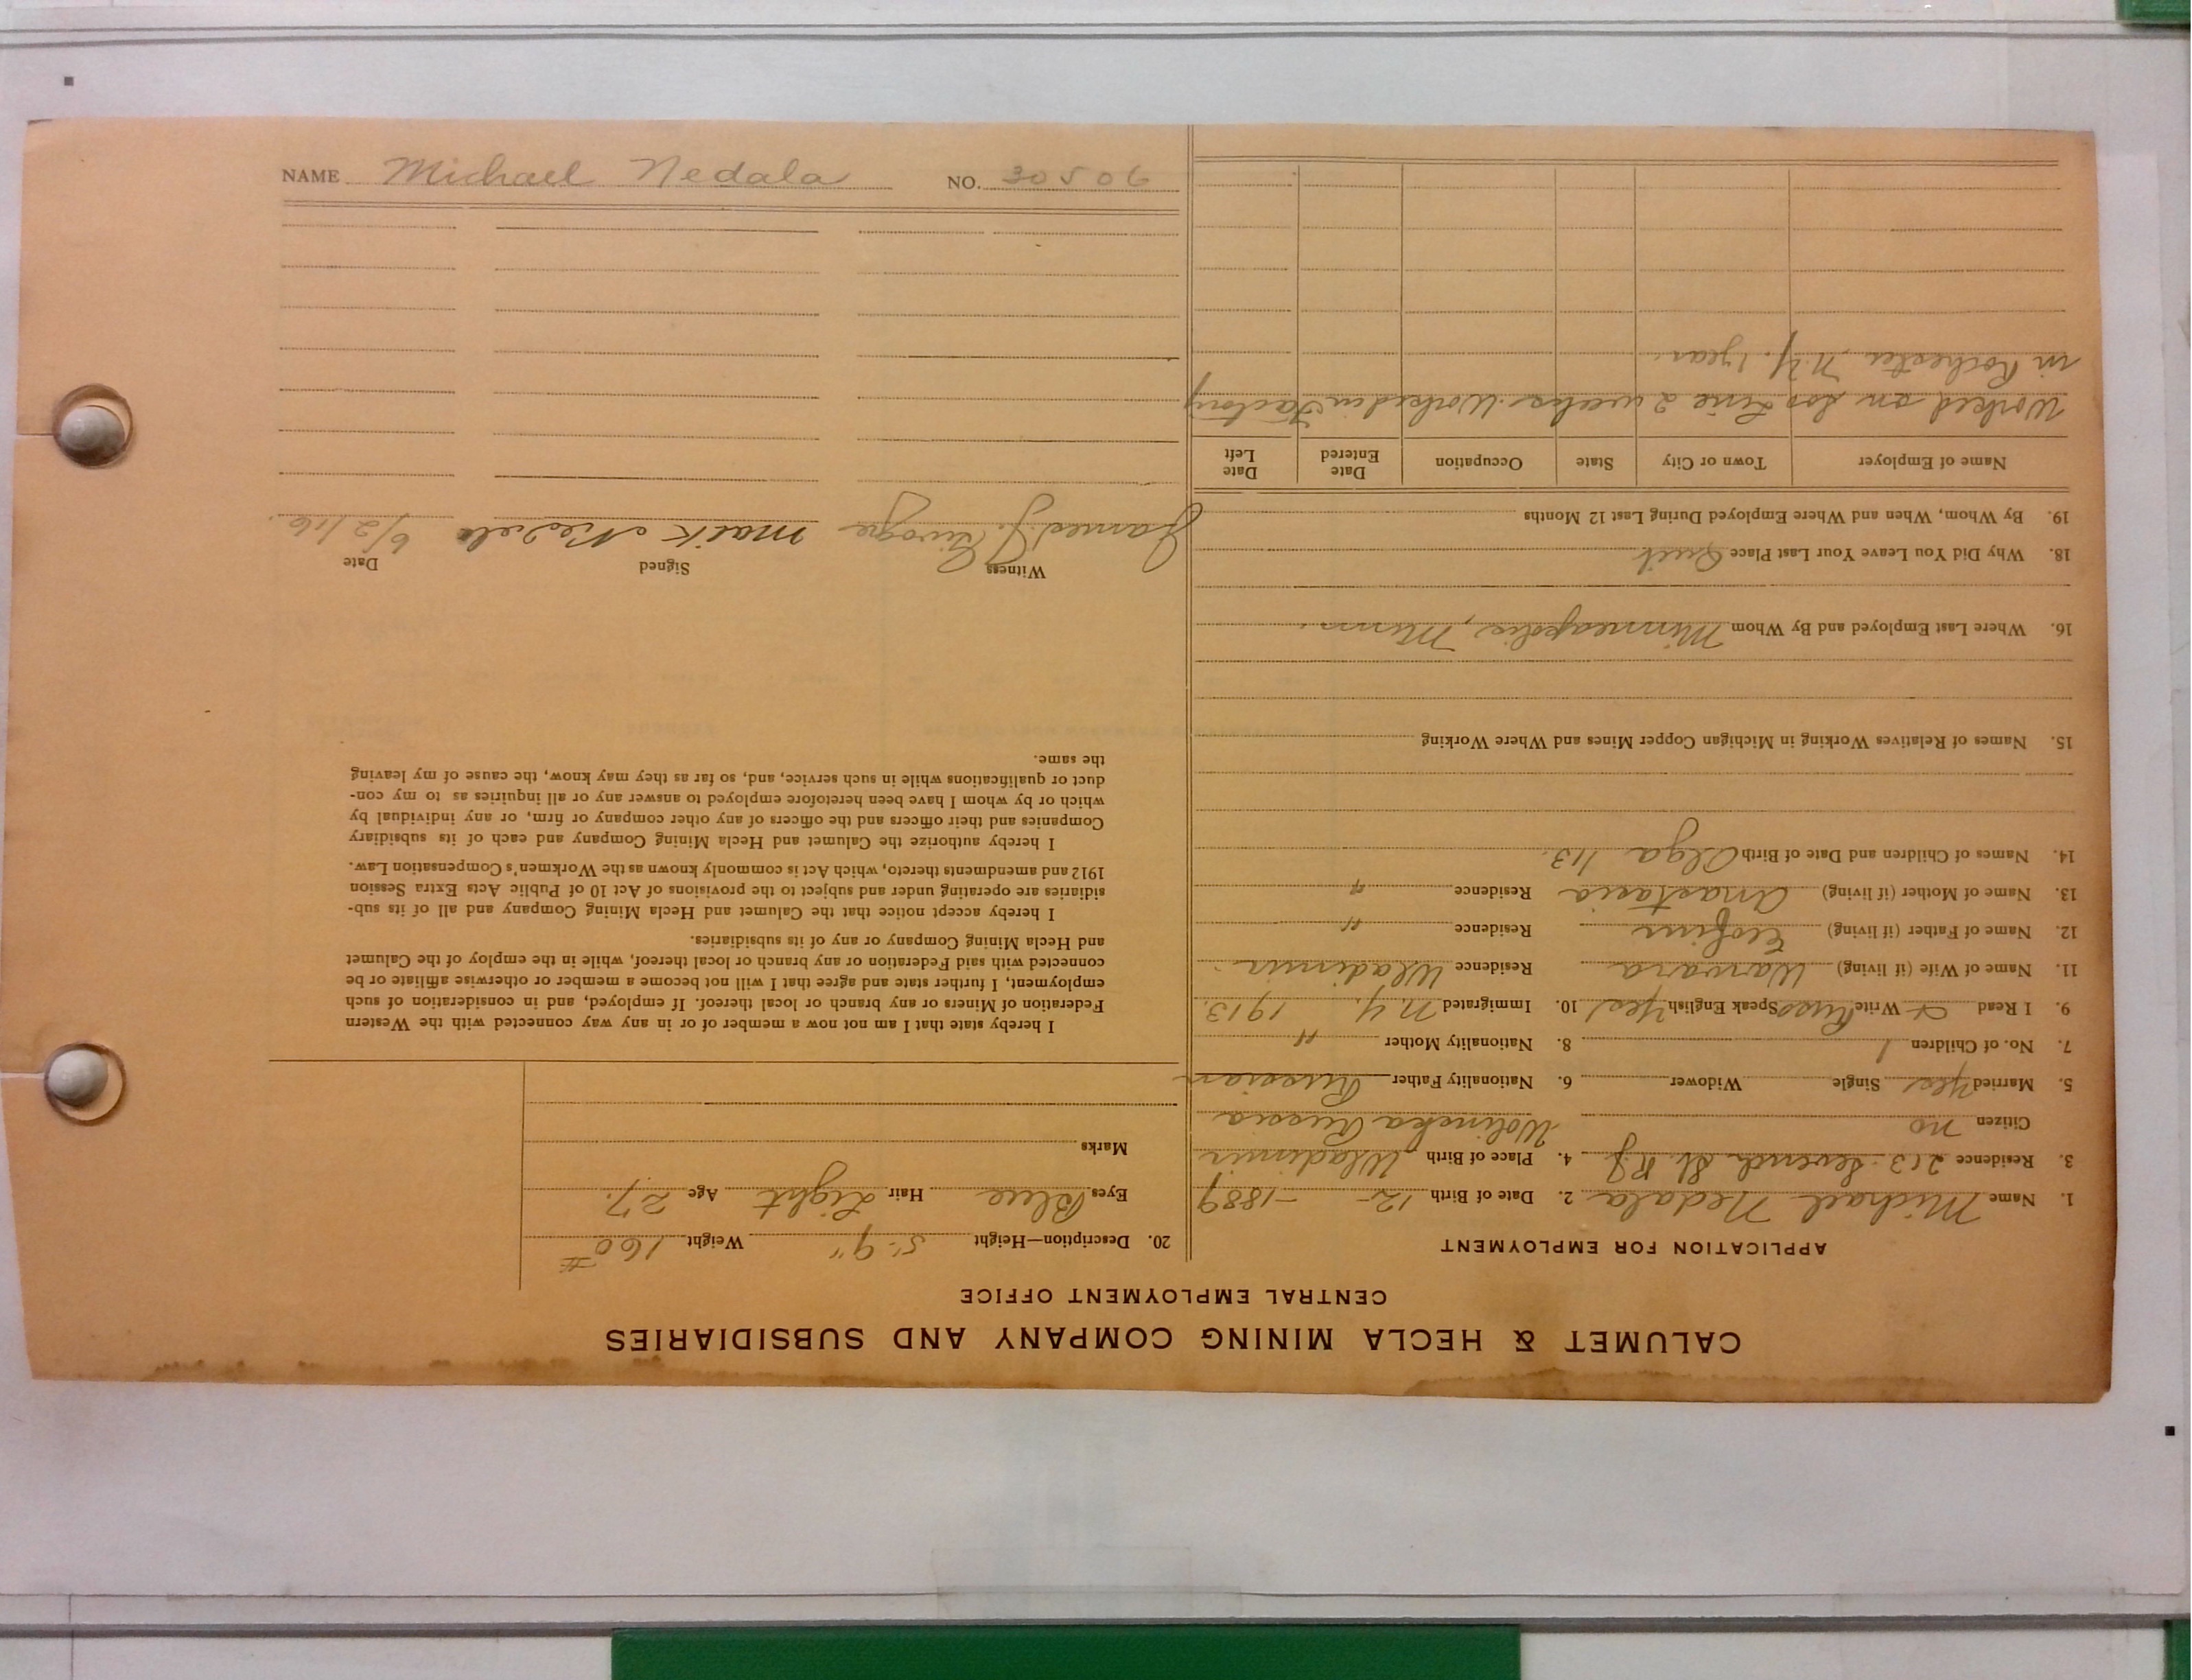 CALUMET & HECLA MINING COMPANY AND SUBSIDIARIES
CENTRAL EMPLOYMENT OFFICE
APPLICATION FOR EMPLOYMENT
1. Name Michael Nedala 2. Date of Birth 12 - - 1889
3. Residence 213 Seventh St. R.J. 4. Place of Birth Wladimir
Citizen no Wolinska Russia
5. Married Yes Single Widower 6. Nationality Father Russian
7. No. of Children 1 8. Nationality Mother "
9. I Read & Write Russ Speak English Yes 10. Immigrated N.Y. 1913.
11. Name of Wife (if living) Warvara Residence Wladimir
12. Name of Father (if living) Residence "
13. Name of Mother (if living) Anastasia Residence "
14. Names of Children and Date of Birth Olga 1/13.
15. Names of Relatives Working in Michigan Copper Mines and Where Working
16. Where Last Employed and By Whom Minneapolis, Minn.
18. Why Did You Leave Your Last Place Quit
19. By Whom, When and Where Employed During Last 12 Months
Name of Employer Town or City State Occupation Date Entered Date Left
Worked on Soo Line 2 weeks. Worked in Factory
in Rochester N.Y. 1 year.
20. Description—Height 5' 9" Weight 160#
Eyes Blue Hair Light Age 27.
Marks
I hereby state that I am not now a member of or in any way connected with the Western
Federation of Miners or any branch or local thereof. If employed, and in consideration of such
employment, I further state and agree that I will not become a member or otherwise affiliate or be
connected with said Federation or any branch or local thereof, while in the employ of the Calumet
and Hecla Mining Company or any of its subsidiaries.
I hereby accept notice that the Calumet and Hecla Mining Company and all of its sub-
sidiaries are operating under and subject to the provisions of Act 10 of Public Acts Extra Session
1912 and amendments thereto, which Act is commonly known as the Workmen's Compensation Law.
I hereby authorize the Calumet and Hecla Mining Company and each of its subsidiary
Companies and their officers and the officers of any other company or firm, or any individual by
which or by whom I have been heretofore employed to answer any or all inquiries as to my con-
duct or qualifications while in such service, and, so far as they may know, the cause of my leaving
the same.
Witness Signed Date
James J. 6/2/16.
NAME Michael Nedala NO. 30506